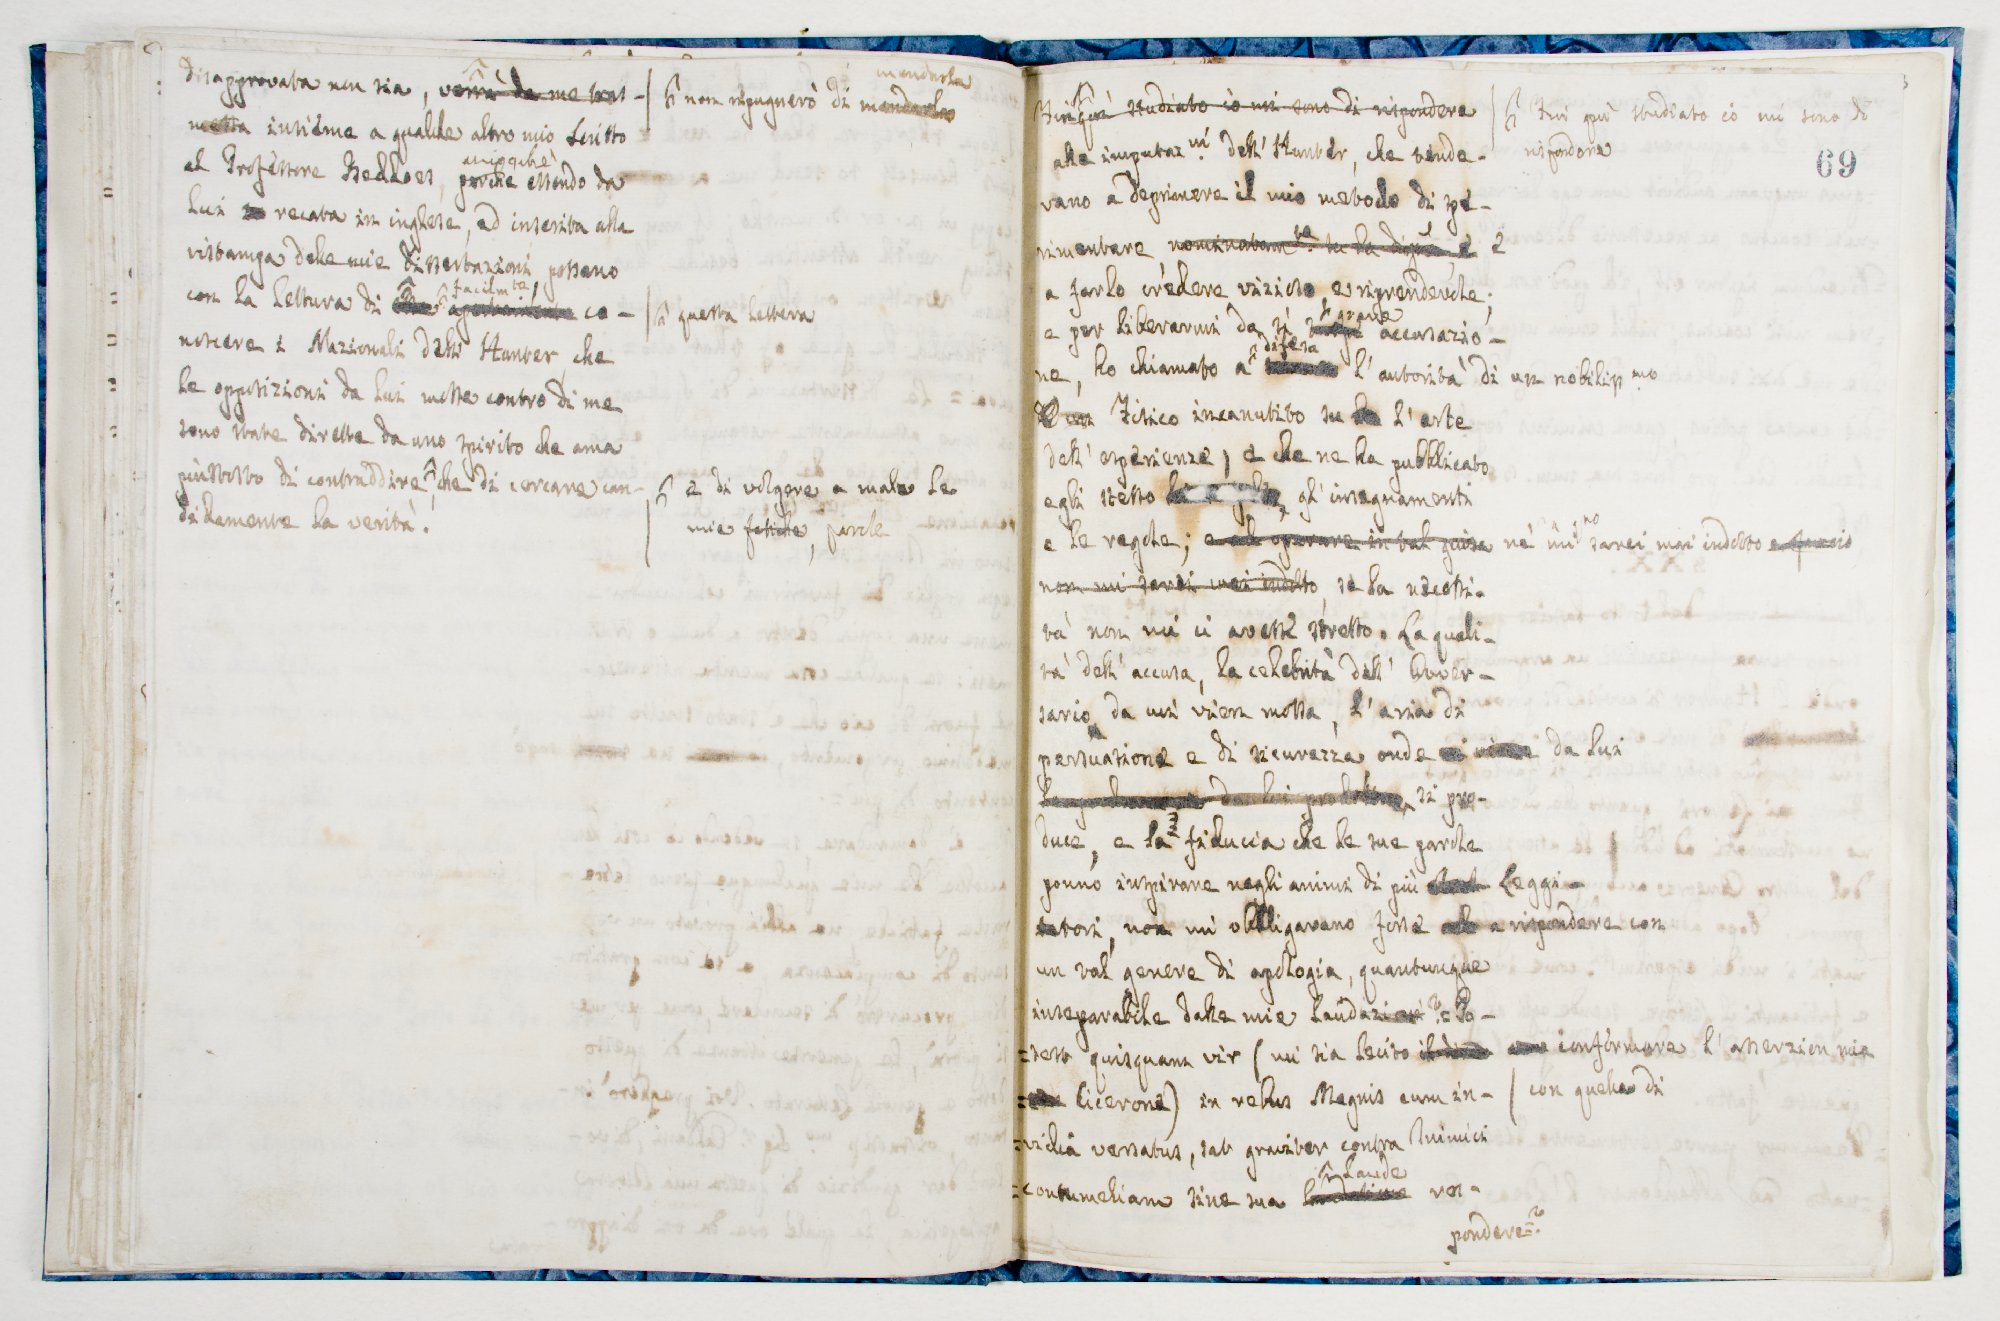 disapprovata non sia, verrà da me tras-
messa insieme a qualche altro mio scritto
al Professore Beddoes, acciocchè perchè essendo da
lui recata in inglese, ed inserita alla
ristampa delle mie dissertazioni possano
con la lettura di facilmte co-
noscere i Nazionali dell' Hunter, che
le opposizioni da lui mosse contro di me
sono state dirette da uno spirito che ama
piuttosto di contraddire che di cercare can-
didamente la verità.
non ripugnerò di mandarla mandarla
questa lettera
e di volgere a male le
mie fatiche, parole
69
Fin qui studiato io mi sono di rispondere
Fin qui studiato io mi sono di
rispondere
alle imputazni dell' Hunter, che tende-
vano a deprimere il mio metodo di spe-
rimentare nominatamte e
a farlo credere vizioso, e riprendevole;
e per liberarmi da sì grave accusazio-
ne, ho chiamato a difesa l'autorità di un nobilissmo
Fisico incanutito su l'arte
dell' esperienze, e che ne ha pubblicato
egli stesso gl'insegnamenti
e le regole; e ad operare in tal guisa nè mi sarei mai indotto
non mi sarei mai indotto, se la necessi-
tà non mi ci avesse stretto. La quali-
tà dell' accusa, la celebrità dell' Avver-
sario da cui vien mossa, l'aria di
persuasione e di sicurezza onde da lui
si pro-
duce, e la fiducia che le sue parole
ponno inspirare negli animi di più Leggi-
tori, non mi obbligavano forse a rispondere con
un tal genere di apologia, quantunque
inseparabile dalle mie laudazioni?
quisquam vir (mi sia lecito confermare l'asserzion mia
con quella di
Cicerone) in rebus Magnis cum in-
vidia versatus, sat graviter contra Inimici
contumeliam sine sua laude res-
pondere?